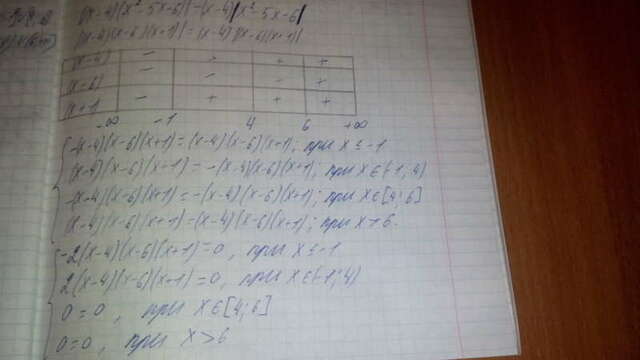 |(x-4)(x²-5x-6)|=(x-4)|x²-5x-6|
|(x-4)(x-6)(x+1)|=(x-4)|(x-6)(x+1)|
(x-4) - - + +
(x-6) - - - +
(x+1) - + + +
-∞ -1 4 6 +∞
-(x-4)(x-6)(x+1)=(x-4)(x-6)(x+1); при x≤-1
(x-4)(x-6)(x+1)=-(x-4)(x-6)(x+1); при x∈(-1;4)
-(x-4)(x-6)(x+1)=-(x-4)(x-6)(x+1); при x∈[4;6]
(x-4)(x-6)(x+1)=(x-4)(x-6)(x+1); при x>6.
-2(x-4)(x-6)(x+1)=0, при x≤-1
2(x-4)(x-6)(x+1)=0, при x∈(-1;4)
0=0, при x∈[4;6]
0=0, при x>6